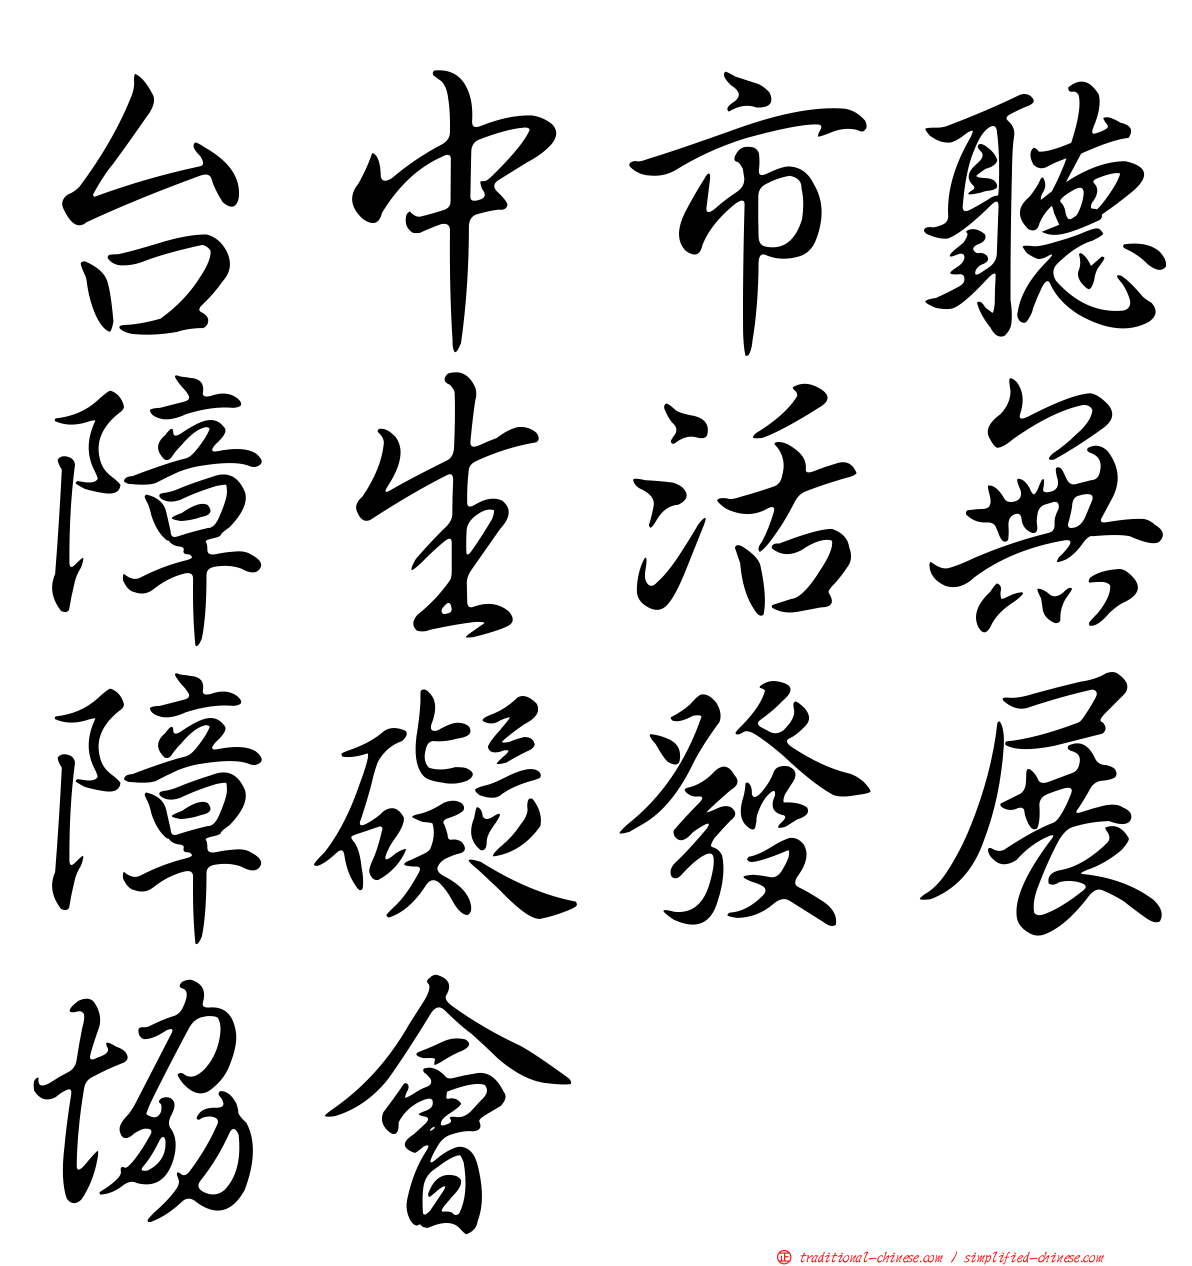 台中市聽
障生活無
障礙發展
協會
㊣ traditional-chinese.com / simplified-chinese.com